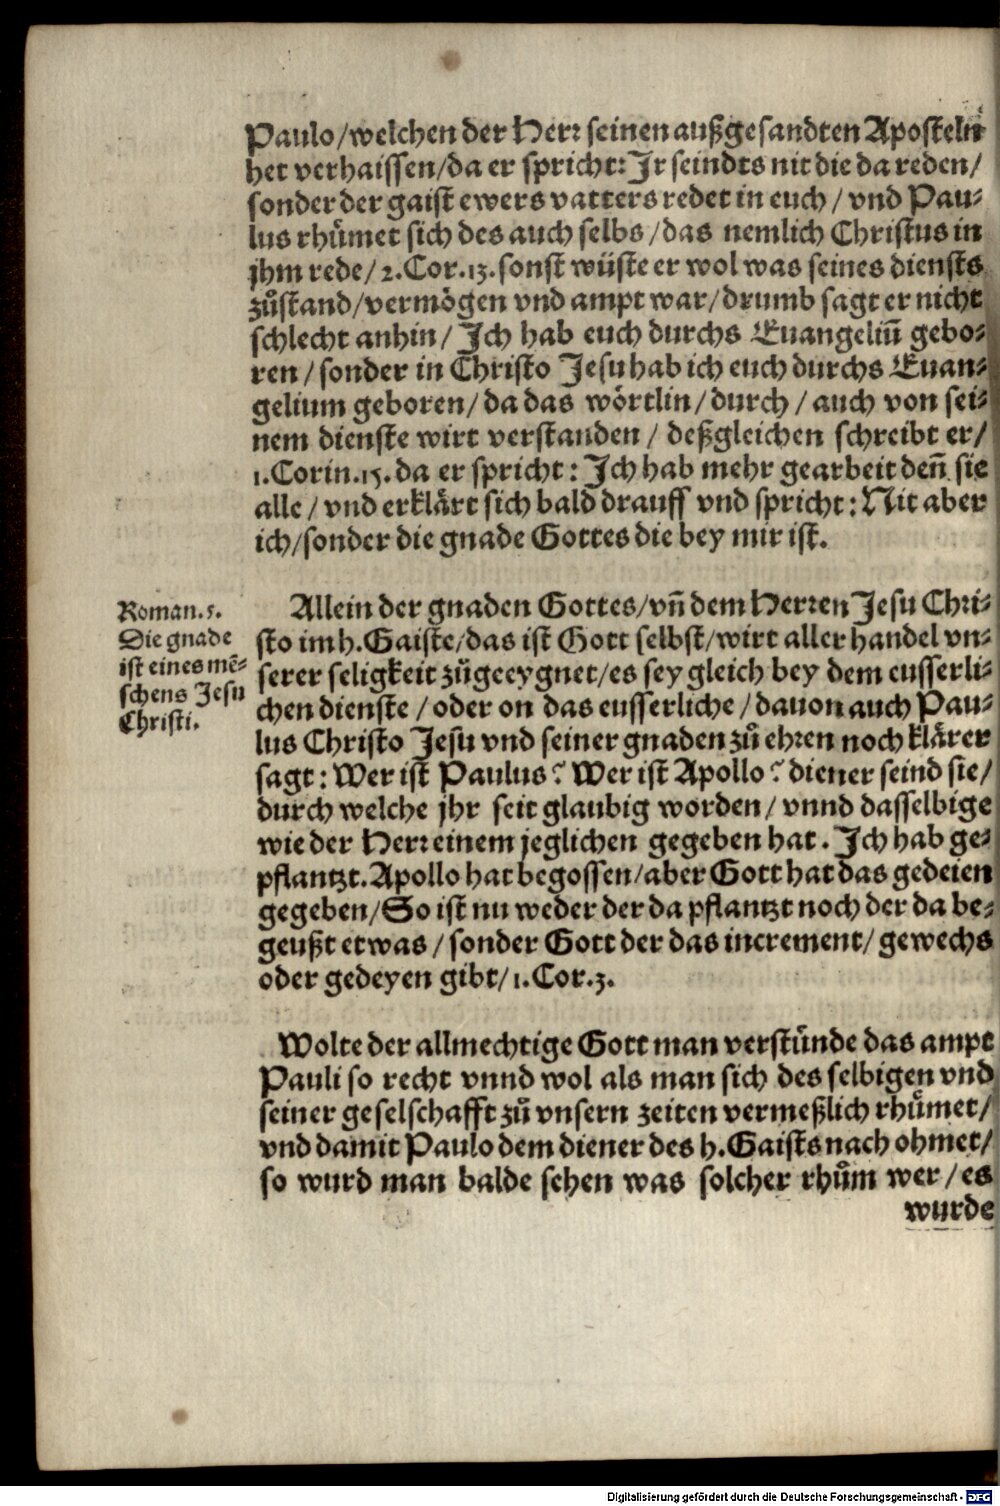 Paulo/welchen der Herr seinen außgesandten Aposteln
het verhaissen/da er spricht: Ir seindts nit die da reden/
sonder der gaist ewers vatters redet in euch/ vnd Pau⸗
lus rhuͤmet sich des auch selbs/das nemlich Christus in
jhm rede/2.Cor.13.sonst wüste er wol was seines diensts
zuͦstand/vermoͤgen vnd ampt war/drumb sagt er nicht
schlecht anhin/ Ich hab euch durchs Euangeliū gebo⸗
ren/sonder in Christo Jesu hab ich euch durchs Euan⸗
gelium geboren/da das woͤrtlin/durch/auch von sei⸗
nem dienste wirt verstanden/ deßgleichen schreibt er/
1.Corin.15.da er spricht: Ich hab mehr gearbeit deñ sie
alle/vnd erklaͤrt sich bald drauff vnd spricht: Nit aber
ich/sonder die gnade Gottes die bey mir ist.
Roman.5.
Die gnade
ist eines mē⸗
schens Jesu
Christi.
Allein der gnaden Gottes/vñ dem Herren Jesu Chri⸗
sto im h.Gaiste/das ist Gott selbst/wirt aller handel vn⸗
serer seligkeit zuͦgeeygnet/es sey gleich bey dem eusserli⸗
chen dienste/oder on das eusserliche/dauon auch Pau⸗
lus Christo Jesu vnd seiner gnaden zuͦ ehren noch klaͤrer
sagt: Wer ist Paulus? Wer ist Apollo? diener seind sie/
durch welche jhr seit glaubig worden/ vnnd dasselbige
wie der Herr einem jeglichen gegeben hat. Ich hab ge⸗
pflantzt.Apollo hat begossen/aber Gott hat das gedeien
gegeben/So ist nu weder der da pflantzt noch der da be⸗
geußt etwas/sonder Gott der das increment/gewechs
oder gedeyen gibt/1.Cor.3.
Wolte der allmechtige Gott man verstünde das ampt
Pauli so recht vnnd wol als man sich des selbigen vnd
seiner geselschafft zuͦ vnsern zeiten vermeßlich rhuͤmet/
vnd damit Paulo dem diener des h.Gaists nach ohmet/
so wurd man balde sehen was solcher rhuͦm wer/es
wurde
Digitalisierung gefördert durch die Deutsche Forschungsgemeinschaft - DFG